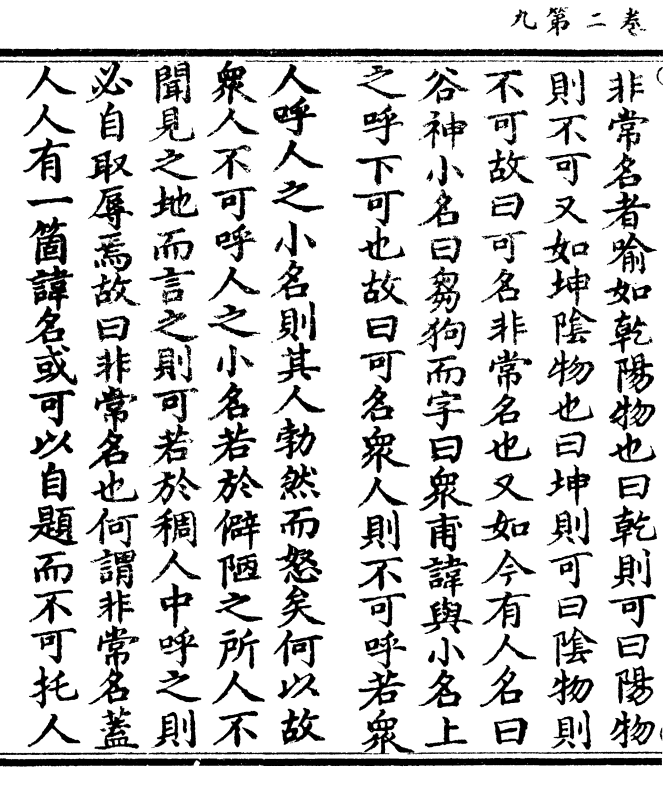 卷二第九
非常名者喻如乾陽物也曰乾則可曰陽物
則不可又如坤陰物也曰坤則可曰陰物則
不可故曰可名非常名也又如今有人名曰
谷神小名曰芻狗而字曰衆甫諱與小名上
之呼下可也故曰可名衆人則不可呼若衆
人呼人之小名則其人勃然而怒矣何以故
衆人不可呼人之小名若於僻陋之所人不
聞見之地而言之則可若於稠人中呼之則
必自取辱焉故曰非常名也何謂非常名蓋
人人有一箇諱名或可以自題而不可托人